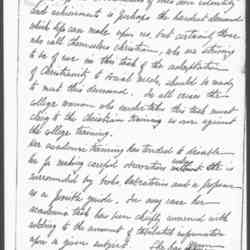 and achievements is perhaps the hardest demand
which life can make upon us, but certainly those
who call themselves Christian, who are striving
to be of use in this task of the adaptation
of Christianity to social needs, should be ready
to meet this demand. In all cases the
college woman who undertakes this task must
cling to the Christian training as over against
the college training.
Her academic training has tended to disable
her for making careful observations unless she is
surrounded by books, laboratories and a professor
as a guide. In any case her
academic task has been chiefly concerned with
adding to the amount of tabulated information
upon a given subject. She has